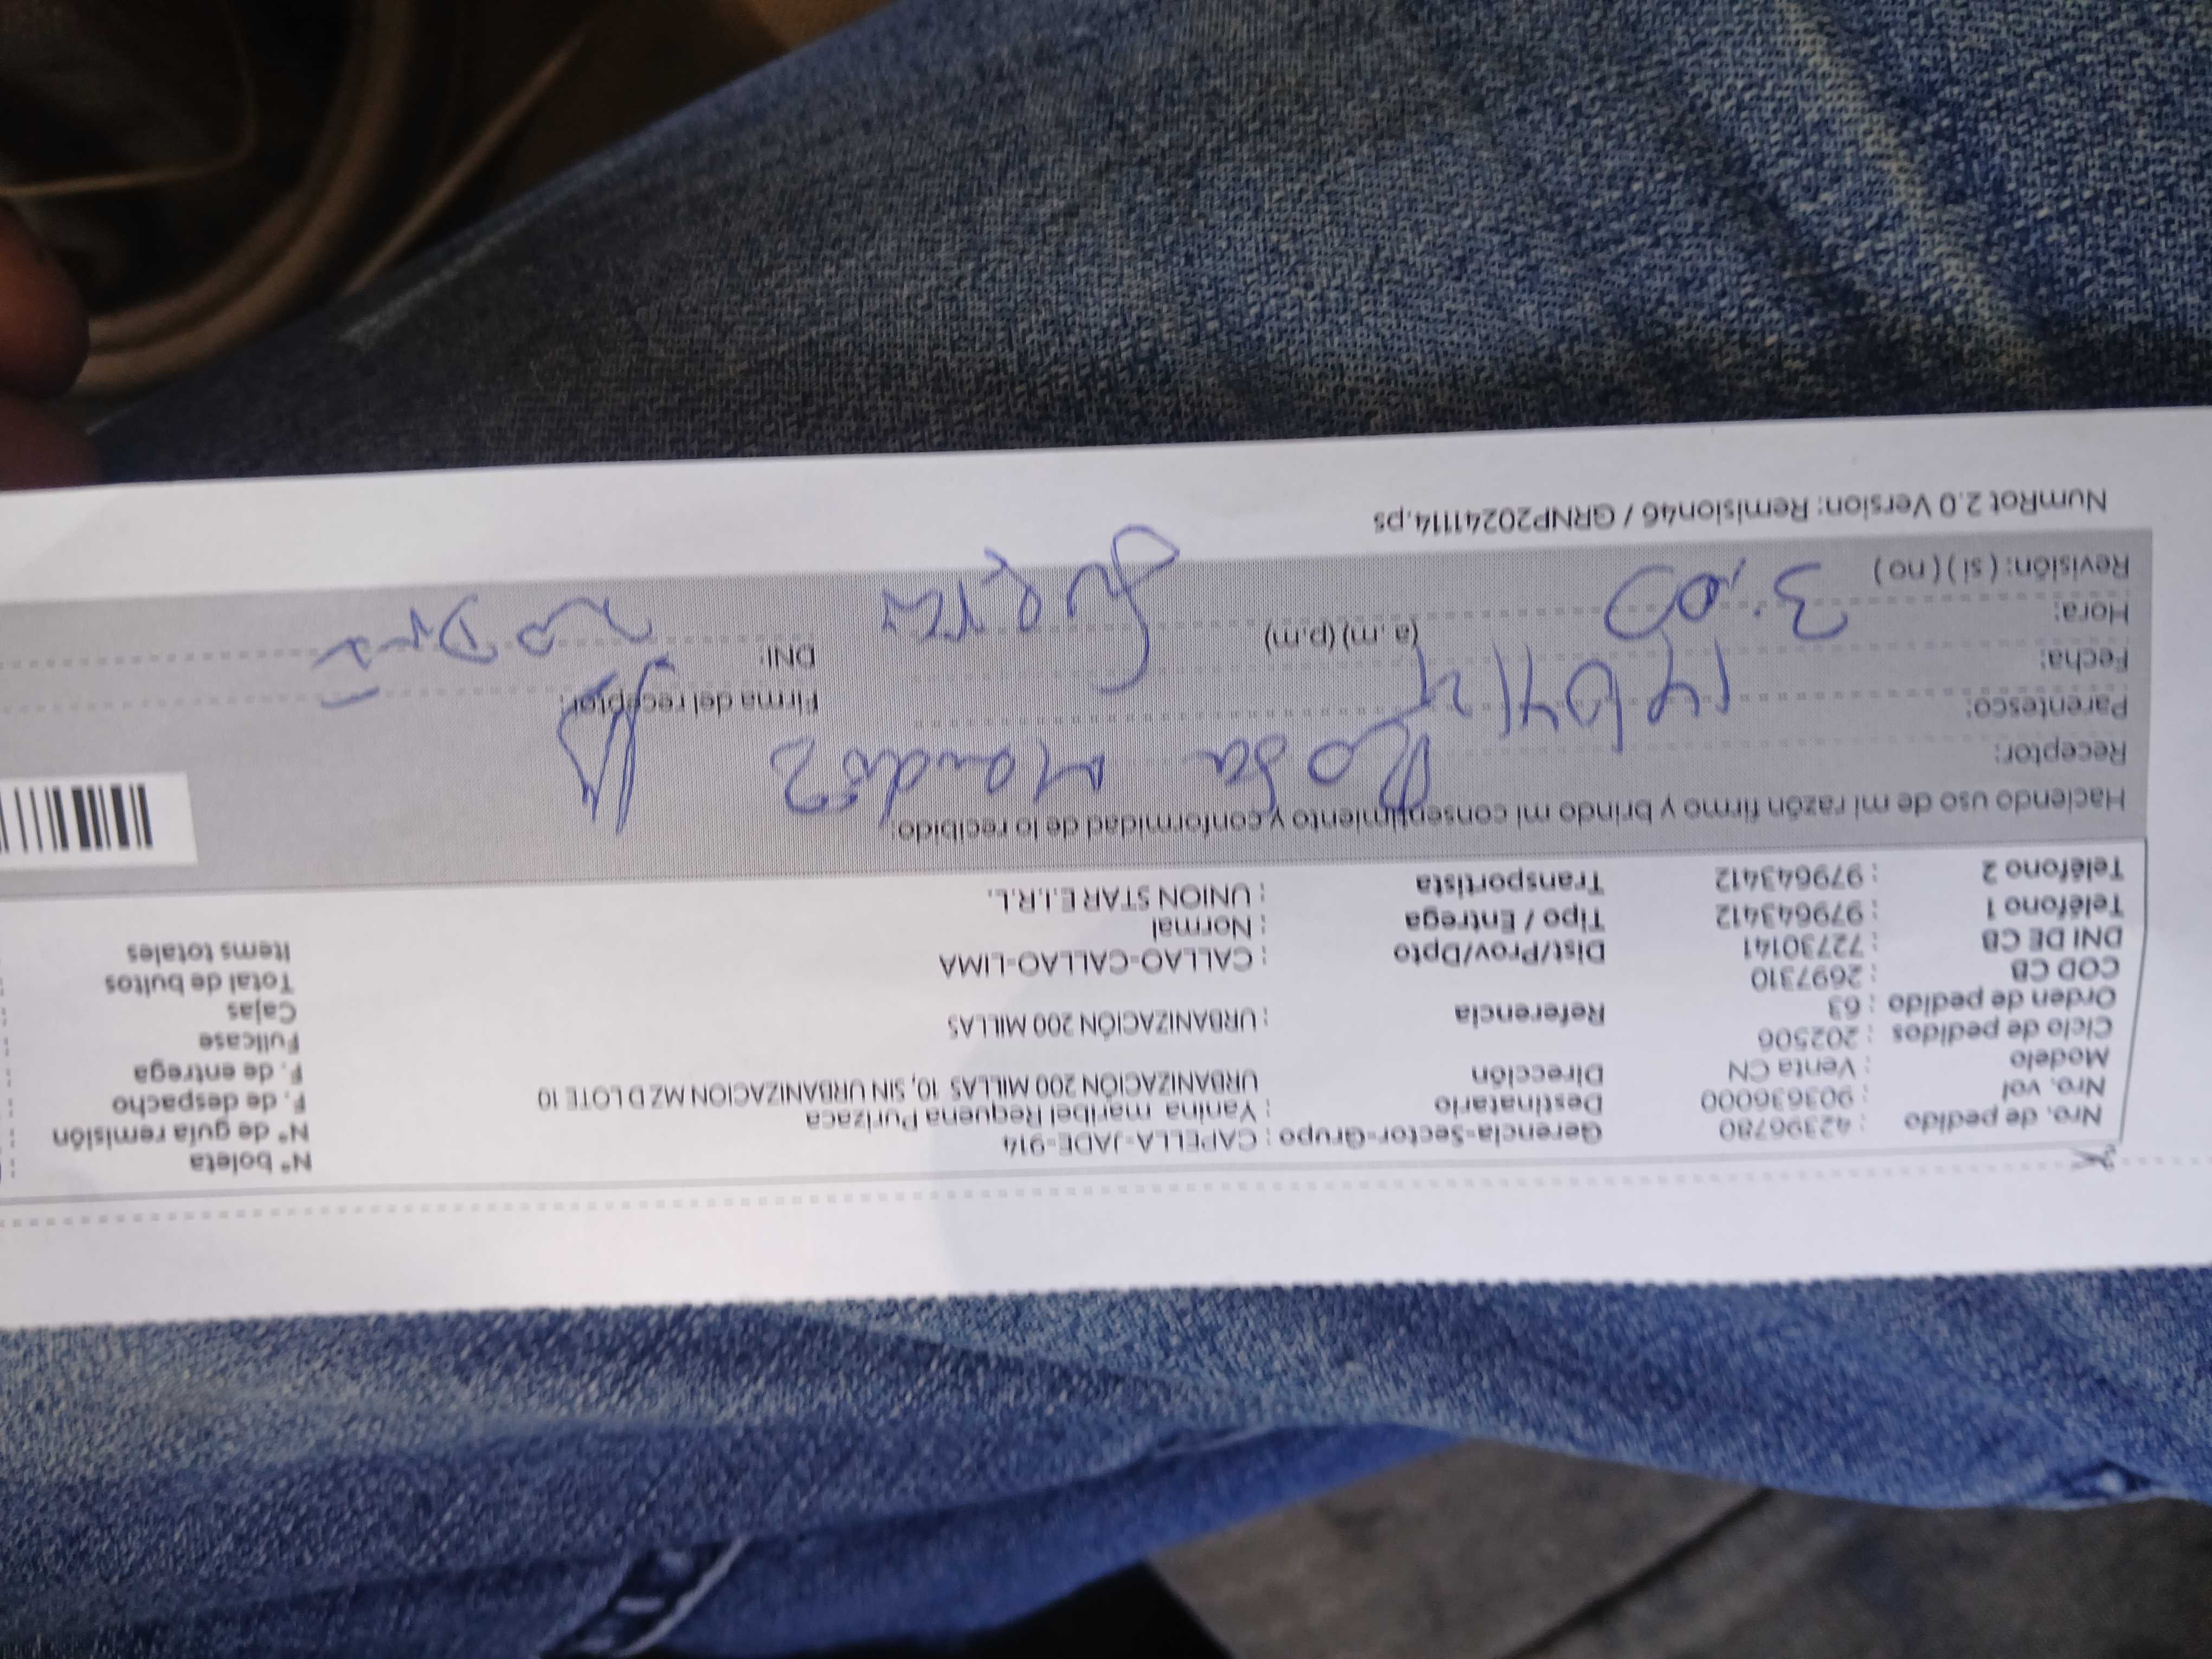 Nro. de pedido : 42396780 Gerencia-Sector-Grupo : CAPELLA-JADE-914 N° boleta
Nro. vol : 903636000 Destinatario : Yanina maribel Requena Purizaca N° de guía remisión
Modelo : Venta CN Dirección URBANIZACIÓN 200 MILLAS 10, SIN URBANIZACION MZ D LOTE 10 F. de despacho
Ciclo de pedidos : 202506 F. de entrega
Orden de pedido : 63 Referencia : URBANIZACIÓN 200 MILLAS Fullcase
COD CB : 2697310 Cajas
DNI DE CB : 72730141 Dist/Prov/Dpto : CALLAO-CALLAO-LIMA Total de bultos
Teléfono 1 : 979643412 Tipo / Entrega : Normal Items totales
Teléfono 2 : 979643412 Transportista : UNION STAR E.I.R.L.
Haciendo uso de mi razón firmo y brindo mi consentimiento y conformidad de lo recibido:
Receptor: Rosa
Parentesco: Firma del receptor:
Fecha:
Hora: 3:00 (a.m) (p.m) DNI:
Revisión: ( si ) ( no )
NumRot 2.0 Version: Remision46 / GRNP20241114.ps